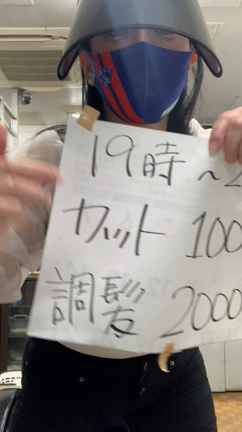 19時～2
カット 100
調髪 2000